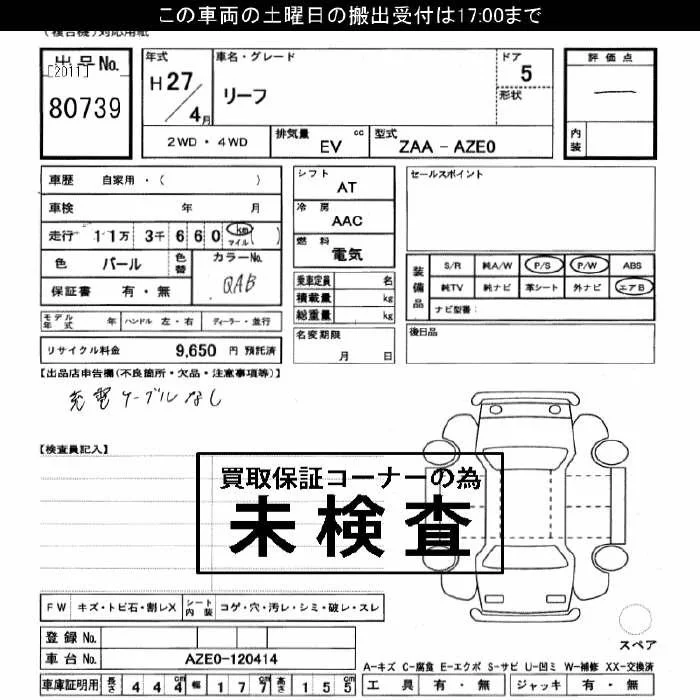 この車両の土曜日の搬出受付は17:00まで
(複合機)対応用紙
出品No.
[2011]
80739
年式
H27/4月
車名・グレード
リーフ
ドア
5
形状
評価点
―
内装
2WD・4WD
排気量 cc
EV
型式
ZAA-AZE0
車歴 自家用・( )
車検 年 月
走行 11万 3千 660 km マイル ( )
色 パール 色替
カラーNo.
QAB
保証書 有・無
シフト
AT
冷房
AAC
燃料
電気
乗車定員 名
積載量 kg
総重量 kg
セールスポイント
装備品
S/R 純A/W P/S P/W ABS
純TV 純ナビ 革シート 外ナビ エアB
ナビ型番:
モデル年式 年 ハンドル 左・右 ディーラー・並行
名変期限
月 日
後日品
リサイクル料金 9,650 円 預託済
【出品店申告欄(不良箇所・欠品・注意事項等)】
充電ケーブルなし
【検査員記入】
買取保証コーナーの為
未検査
FW キズ・トビ石・割レX シート内装 コゲ・穴・汚レ・シミ・破レ・スレ
登録No.
車台No. AZE0-120414
スペア
A-キズ C-腐食 E-エクボ S-サビ U-凹ミ W-補修 XX-交換済
車庫証明用 長さ 444 cm 幅 177 cm 高さ 155 cm
工具 有・無 ジャッキ 有・無